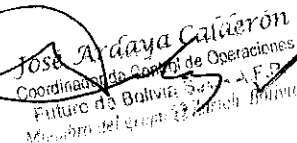 José Ardaya Calderón
Coordinador de Control de Operaciones
Futuro de Bolivia S.A. A.F.P.
Miembro del grupo Zurich Bolivia